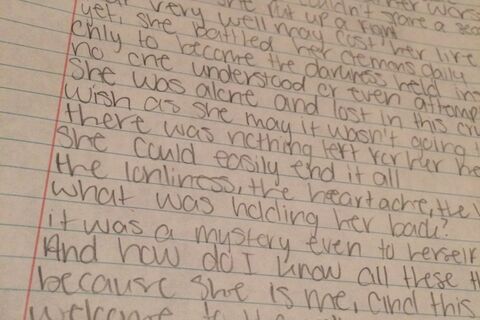 her wors
couldn't spare a sec
she put up a fight
very well may cost her life
yet, she battled her demons daily
only to become the darkness held ins
no one understood or even attemp
She was alone and lost in this cru
Wish as she may it wasn't going
there was nothing left for her he
She could easily end it all
the lonliness, the heartache, the
what was holding her back?
it was a mystery even to herself
And how do I know all these th
because She is me, and this
welcome to